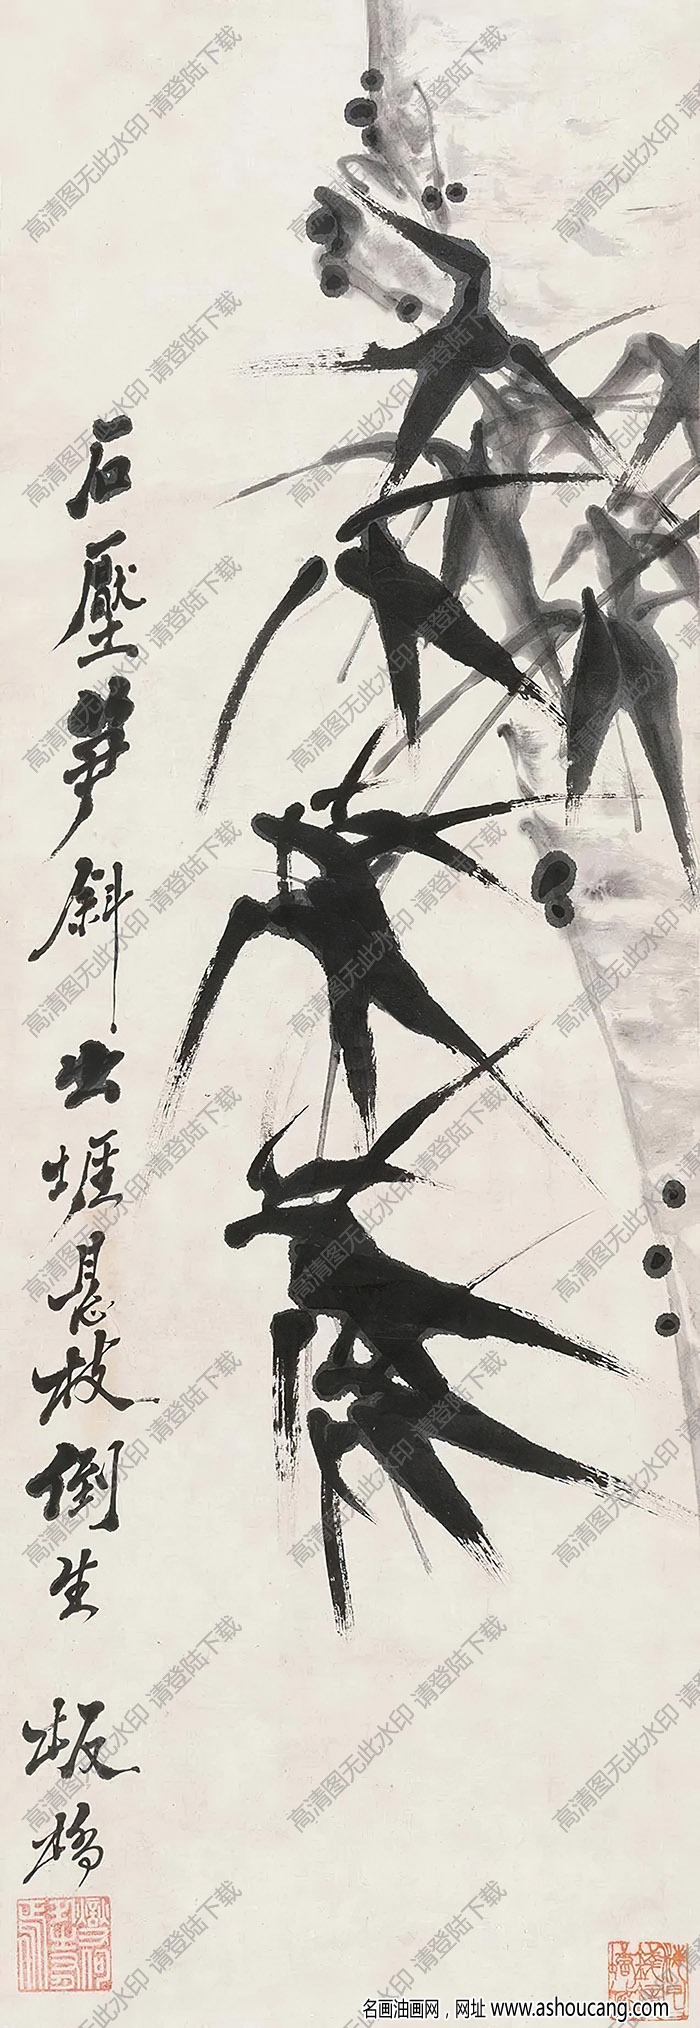 石壓笋斜出 崖悬枝倒生 板橋
高清图无此水印 请登陆下载
名画油画网，网址 www.ashoucang.com